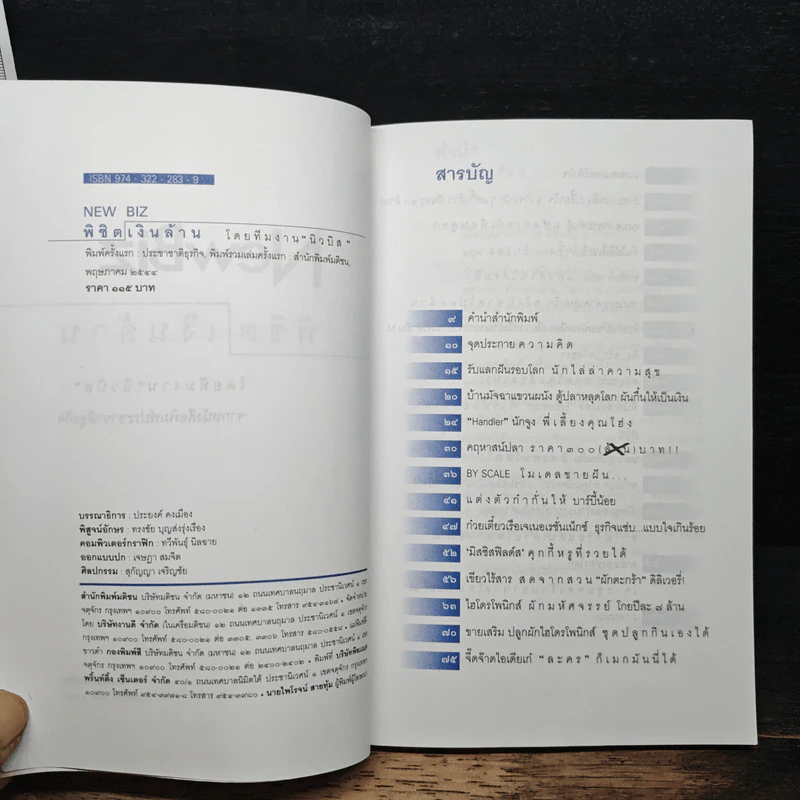 ISBN 974 - 322 - 283 - 9
NEW BIZ
พิชิตเงินล้าน โดยทีมงาน "นิวบิส"
พิมพ์ครั้งแรก : ประชาชาติธุรกิจ, พิมพ์รวมเล่มครั้งแรก : สำนักพิมพ์มติชน,
พฤษภาคม ๒๕๔๔
ราคา ๑๑๕ บาท
บรรณาธิการ : ประยงค์ คงเมือง
พิสูจน์อักษร : ทรงชัย บุญส่งรุ่งเรือง
คอมพิวเตอร์กราฟิก : ทวีพันธุ์ นิลฉาย
ออกแบบปก : เจษฎา สมจิต
ศิลปกรรม : สุกัญญา เจริญชัย
สำนักพิมพ์มติชน บริษัทมติชน จำกัด (มหาชน) ๑๒ ถนนเทศบาลนฤมาล ประชานิเวศน์ ๑ เขต
จตุจักร กรุงเทพฯ ๑๐๙๐๐ โทรศัพท์ ๕๘๐-๐๐๒๑ ต่อ ๓๓๓๕ โทรสาร
โดย บริษัทงานดี จำกัด (ในเครือมติชน) ๑๒ ถนนเทศบาลนฤมาล ประชานิเวศน์ ๑ เขตจตุจักร
กรุงเทพฯ ๑๐๙๐๐ โทรศัพท์ ๕๘๐-๐๐๒๑ ต่อ ๓๓๐๕, ๓๓๐๖ โทรสาร
ขาวดำ กองพิมพ์สี บริษัทมติชน จำกัด (มหาชน) ๑๒ ถนนเทศบาลนฤมาล ประชานิเวศน์ ๑ เขต
จตุจักร กรุงเทพฯ ๑๐๙๐๐ โทรศัพท์ ๕๘๐-๐๐๒๑ ต่อ ๒๔๐๐-๒๔๐๒ • พิมพ์ที่
พริ้นท์ติ้ง เซ็นเตอร์ จำกัด ๔๐/๑ ถนนเทศบาลนิมิตใต้ ประชานิเวศน์ ๑ เขตจตุจักร กรุงเทพฯ
๑๐๙๐๐ โทรศัพท์ โทรสาร • นายไพโรจน์ สายทุ้ม
สารบัญ
๙ คำนำสำนักพิมพ์
๑๐ จุดประกาย ความคิด
๑๕ รับแลกฝันรอบโลก นักไล่ล่าความสุข
๒๐ บ้านมัจฉาแขวนผนัง ตู้ปลาหลุดโลก ผันกึ๋นให้เป็นเงิน
๒๔ "Handler" นักจูง พี่เลี้ยงคุณโฮ่ง
๓๐ คฤหาสน์ปลา ราคา๓๐๐(ล้าน)บาท!!
๓๖ BY SCALE โมเดลขายฝัน...
๔๑ แต่งตัวกำกั่นให้ บาร์บี้น้อย
๔๗ ก๋วยเตี๋ยวเรือเจเนอเรชั่นเน็กซ์ ธุรกิจแซ่บ...แบบใจเกินร้อย
๕๒ 'มิสซิสฟิลด์ส' คุกกี้หรูที่รวยได้
๕๖ เขียวไร้สาร สดจากสวน "ผักตะกร้า" ดิลิเวอรี่!
๖๓ ไฮโดรโพนิกส์ ผักมหัศจรรย์ โกยปีละ ๗ ล้าน
๗๐ ขายเสริม ปลูกผักไฮโดรโพนิกส์ ชุดปลูกกินเองได้
๗๕ จี๊ดจ๊าดไอเดียเก๋ "ละคร" ก็เมกมันนี่ได้